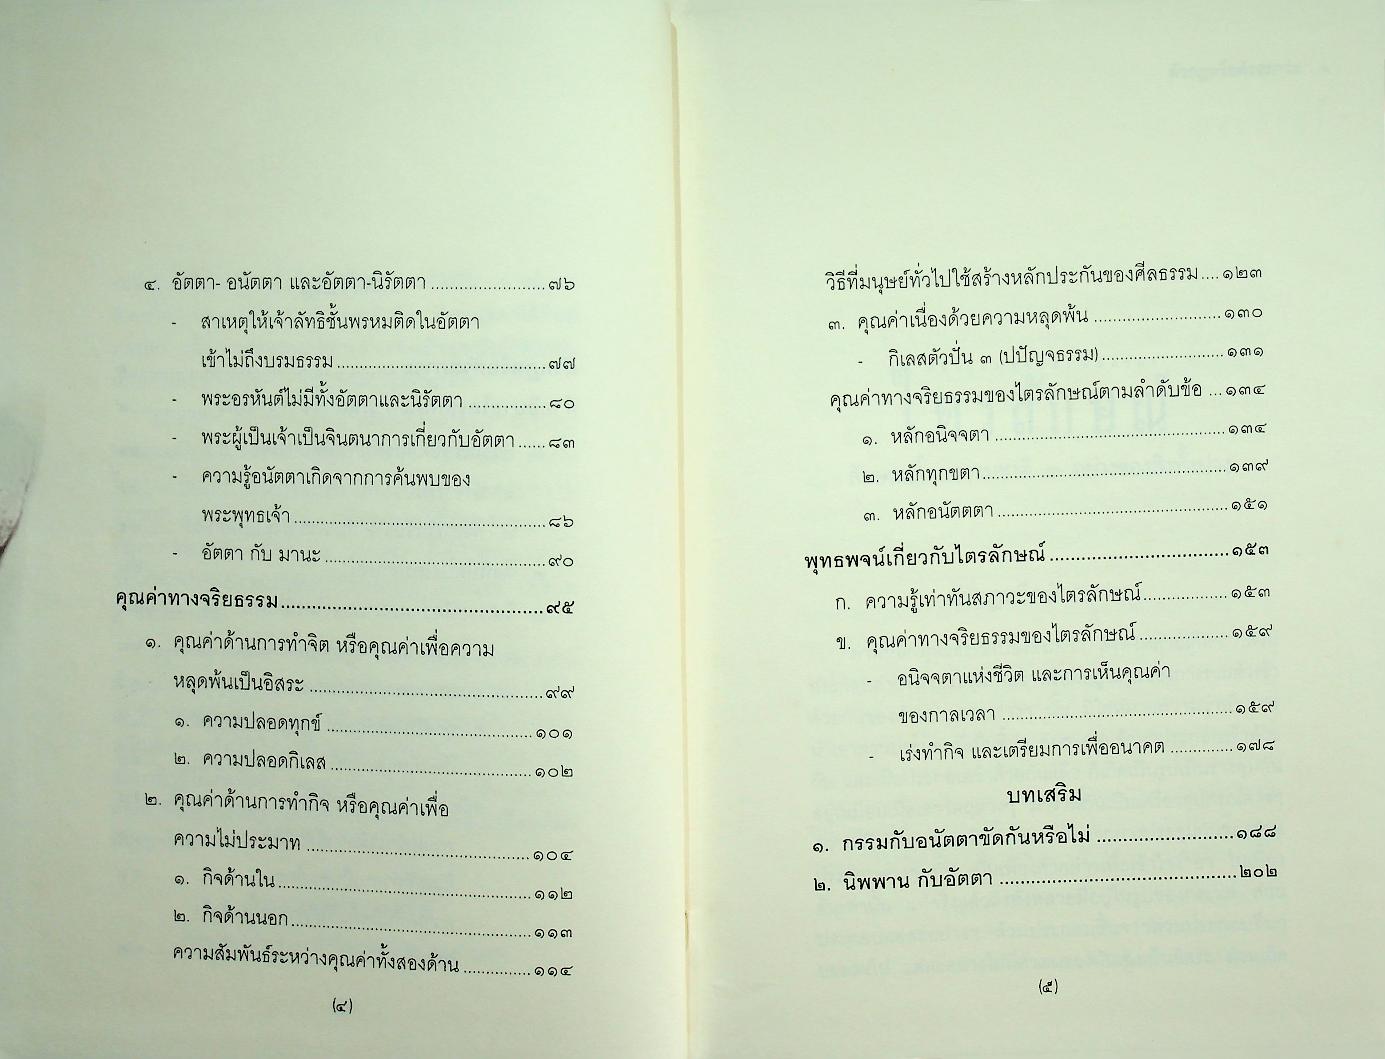 ๔. อัตตา- อนัตตา และอัตตา-นิรัตตา ........................๗๖
- สาเหตุให้เจ้าลัทธิชั้นพรหมติดในอัตตา
เข้าไม่ถึงบรมธรรม ............................................๗๗
- พระอรหันต์ไม่มีทั้งอัตตาและนิรัตตา .................๘๐
- พระผู้เป็นเจ้าเป็นจินตนาการเกี่ยวกับอัตตา ......๘๓
- ความรู้อนัตตาเกิดจากการค้นพบของ
พระพุทธเจ้า .....................................................๘๖
- อัตตา กับ มานะ ..............................................๙๐
คุณค่าทางจริยธรรม.............................................๙๕
๑. คุณค่าด้านการทำจิต หรือคุณค่าเพื่อความ
หลุดพ้นเป็นอิสระ .................................................๙๙
๑. ความปลอดทุกข์ ............................................๑๐๑
๒. ความปลอดกิเลส ..........................................๑๐๒
๒. คุณค่าด้านการทำกิจ หรือคุณค่าเพื่อ
ความไม่ประมาท ................................................๑๐๔
๑. กิจด้านใน.......................................................๑๑๒
๒. กิจด้านนอก...................................................๑๑๓
ความสัมพันธ์ระหว่างคุณค่าทั้งสองด้าน ................๑๑๔
(๔)
วิธีที่มนุษย์ทั่วไปใช้สร้างหลักประกันของศีลธรรม ....๑๒๓
๓. คุณค่าเนื่องด้วยความหลุดพ้น ...........................๑๓๐
- กิเลสตัวปั่น ๓ (ปปัญจธรรม)..........................๑๓๑
คุณค่าทางจริยธรรมของไตรลักษณ์ตามลำดับข้อ ...๑๓๔
๑. หลักอนิจจตา .................................................๑๓๔
๒. หลักทุกขตา...................................................๑๓๙
๓. หลักอนัตตตา ................................................๑๕๑
พุทธพจน์เกี่ยวกับไตรลักษณ์ ................................๑๕๓
ก. ความรู้เท่าทันสภาวะของไตรลักษณ์..................๑๕๓
ข. คุณค่าทางจริยธรรมของไตรลักษณ์ ...................๑๕๙
- อนิจจตาแห่งชีวิต และการเห็นคุณค่า
ของกาลเวลา ................................................๑๕๙
- เร่งทำกิจ และเตรียมการเพื่ออนาคต ..............๑๗๘
บทเสริม
๑. กรรมกับอนัตตาขัดกันหรือไม่ ........................๑๘๘
๒. นิพพาน กับอัตตา ..........................................๒๐๒
(๕)